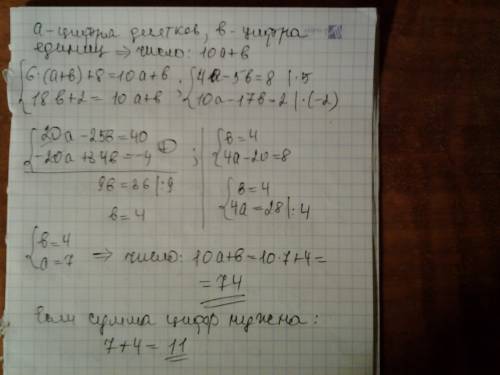 а-цифра десятков, в-цифра
единиц ⇒ число: 10a+b
{6·(a+b)+8=10a+b ; {4a-5b=8 |·5
{18b+2=10a+b ; {10a-17b=2 |·(-2)
{20a-25b=40 ; {b=4
{-20a+34b=-4 (+) ; {4a-20=8
9b=36 |:9 {b=4
b=4 {4a=28 |:4
{b=4
{a=7 ⇒ число: 10a+b=10·7+4=
=74
Если сумма цифр нужна:
7+4=11